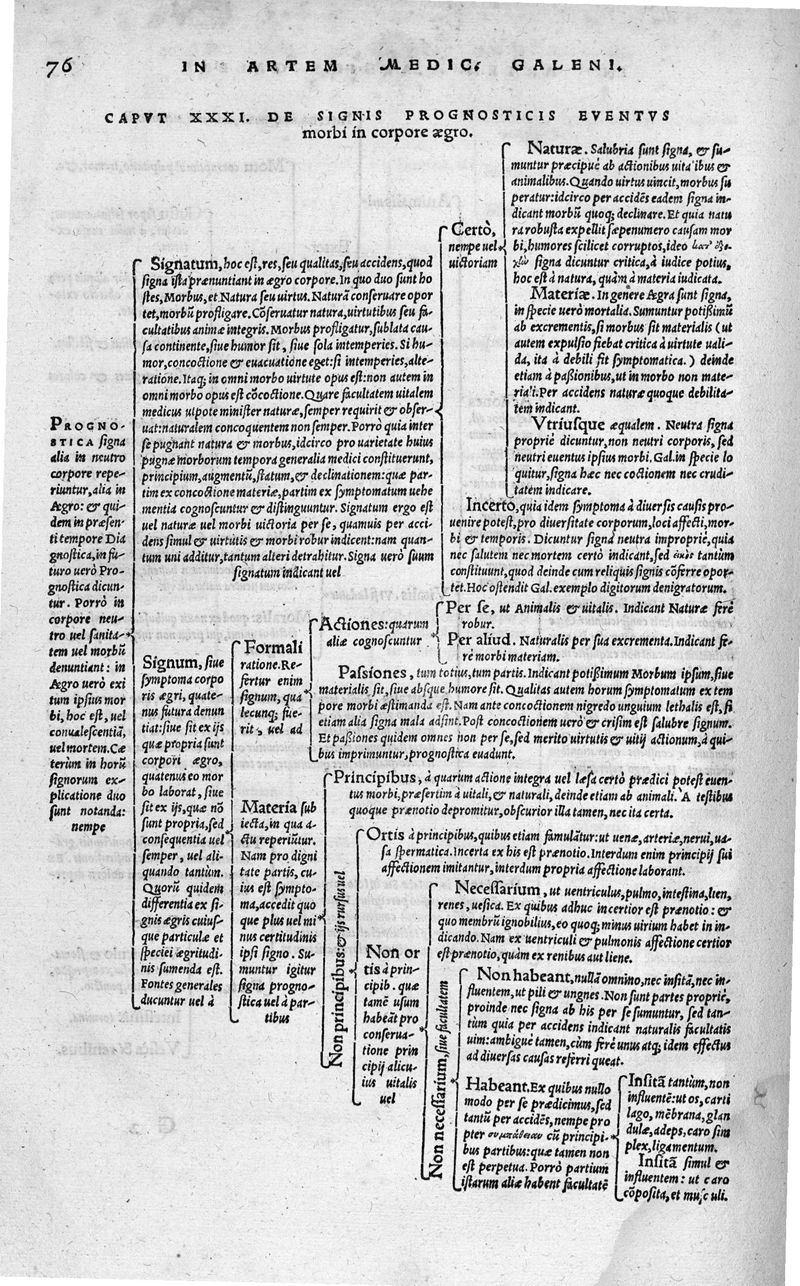 76
IN ARTEM MEDIC. GALENI.
CAPVT XXXI. DE SIGNIS PROGNOSTICIS EVENTVS
morbi in corpore ægro.
PROGNO-
STICA signa
alia in neutro
corpore repe-
riuntur, alia in
Ægro: & qui-
dem in præsen-
ti tempore Dia
gnostica, in fu-
turo uerò Pro-
gnostica dicun-
tur. Porrò in
corpore neu-
tro uel sanita-
tem uel morbū
denuntiant: in
Ægro uerò exi
tum ipsius mor
bi, hoc est, uel
conualescentiā,
uel mortem. Cæ
terùm in horū
signorum ex-
plicatione duo
sunt notanda:
nempe
Signatum, hoc est, res, seu qualitas, seu accidens, quod
signa ista prænuntiant in ægro corpore. In quo duo sunt ho
stes, Morbus, et Natura seu uirtus. Naturā conseruare opor
tet, morbū profligare. Cōseruatur natura, uirtutibus seu fa-
cultatibus animæ integris. Morbus profligatur, sublata cau-
sa continente, siue humor sit, siue sola intemperies. Si hu-
mor, concoctione & euacuatione eget: si intemperies, alte-
ratione. Itaq; in omni morbo uirtute opus est: non autem in
omni morbo opus est cōcoctione. Quare facultatem uitalem
medicus utpote minister naturæ, semper requirit & obser-
uat: naturalem concoquentem non semper. Porrò quia inter
se pugnant natura & morbus, idcirco pro uarietate huius
pugnæ morborum tempora generalia medici constituerunt,
principium, augmentū, statum, & declinationem: quæ par-
tim ex concoctione materiæ, partim ex symptomatum uehe
mentia cognoscuntur & distinguuntur. Signatum ergo est
uel naturæ uel morbi uictoria per se, quamuis per acci-
dens simul & uirtutis & morbi robur indicent: nam quan-
tum uni additur, tantum alteri detrahitur. Signa uerò suum
signatum indicant uel
Certò,
nempe uel
uictoriam
Naturæ. Salubria sunt signa, & su-
muntur præcipuè ab actionibus uitalibus &
animalibus. Quando uirtus uincit, morbus su
peratur: idcirco per accidēs eadem signa in-
dicant morbū quoq; declinare. Et quia natu
ra robusta expellit sæpenumero causam mor
bi, humores scilicet corruptos, ideo
signa dicuntur critica, à iudice potius,
hoc est à natura, quàm à materia iudicata.
Materiæ. In genere Ægra sunt signa,
in specie uerò mortalia. Sumuntur potißimū
ab excrementis, si morbus sit materialis (ut
autem expulsio fiebat critica à uirtute uali-
da, ita à debili fit symptomatica.) deinde
etiam à paßionibus, ut in morbo non mate-
riali. Per accidens naturæ quoque debilita-
tem indicant.
Vtriusque æqualem. Neutra signa
propriè dicuntur, non neutri corporis, sed
neutri euentus ipsius morbi. Gal. in specie lo
quitur, signa hæc nec coctionem nec crudi-
tatem indicare.
Incertò, quia idem symptoma à diuersis causis pro-
uenire potest, pro diuersitate corporum, loci affecti, mor-
bi & temporis. Dicuntur signa neutra impropriè, quia
nec salutem nec mortem certò indicant, sed tantùm
constituunt, quod deinde cum reliquis signis cōferre opor-
tet. Hoc ostendit Gal. exemplo digitorum denigratorum.
Signum, siue
symptoma corpo
ris ægri, quate-
nus futura denun
tiat: siue sit ex ijs
quæ propria sunt
corpori ægro,
quatenus eo mor
bo laborat, siue
sit ex ijs, quæ nō
sunt propria, sed
consequentia uel
semper, uel ali-
quando tantùm.
Quorū quidem
differentia ex si-
gnis ægris cuius-
que particulæ et
speciei ægritudi-
nis sumenda est.
Fontes generales
ducuntur uel à
Formali
ratione. Re-
fertur enim
signum, qua
lecunq; fue-
rit, uel ad
Actiones: quarum
aliæ cognoscuntur
Per se, ut Animalis & uitalis. Indicant Naturæ ferè
robur.
Per aliud. Naturalis per sua excrementa. Indicant fe-
rè morbi materiam.
Passiones, tum totius, tum partis. Indicant potißimum Morbum ipsum, siue
materialis sit, siue absque humore sit. Qualitas autem horum symptomatum ex tem
pore morbi æstimanda est. Nam ante concoctionem nigredo unguium lethalis est, si
etiam alia signa mala adsint. Post concoctionem uerò & crisim est salubre signum.
Et paßiones quidem omnes non per se, sed merito uirtutis & uitij actionum, à qui-
bus imprimuntur, prognostica euadunt.
Materia sub
iecta, in qua a-
ctu reperiūtur.
Nam pro digni
tate partis, cu-
ius est sympto-
ma, accedit quo
que plus uel mi
nus certitudinis
ipsi signo. Su-
muntur igitur
signa progno-
stica uel à par-
tibus
Principibus, à quarum actione integra uel læsa certò prædici potest euen-
tus morbi, præsertim à uitali, & naturali, deinde etiam ab animali. A testibus
quoque prænotio depromitur, obscurior illa tamen, nec ita certa.
Non principibus: & ijs rursus uel
Ortis à principibus, quibus etiam famulātur: ut uenæ, arteriæ, nerui, ua-
sa spermatica. Incerta ex his est prænotio. Interdum enim principij sui
affectionem imitantur, interdum propria affectione laborant.
Non or
tis à prin-
cipib. quæ
tamē usum
habeāt pro
conserua-
tione prin
cipij alicu-
ius uitalis
uel
Necessarium, ut uentriculus, pulmo, intestina, lien,
renes, uesica. Ex quibus adhuc incertior est prænotio: &
quo membrū ignobilius, eo quoq; minus uirium habet in in-
dicando. Nam ex uentriculi & pulmonis affectione certior
est prænotio, quàm ex renibus aut liene.
Non necessarium, siue facultatem
Non habeant, nullā omnino, nec insitā, nec in-
fluentem, ut pili & ungnes. Non sunt partes propriè,
proinde nec signa ab his per se sumuntur, sed tan-
tùm quia per accidens indicant naturalis facultatis
uim: ambiguè tamen, cùm ferè unus atq; idem effectus
ad diuersas causas referri queat.
Habeant. Ex quibus nullo
modo per se prædicimus, sed
tantū per accidēs, nempe pro
pter συμπάθειαν cū principi-
bus partibus: quæ tamen non
est perpetua. Porrò partium
istarum aliæ habent facultatē
Insitā tantùm, non
influentē: ut os, carti
lago, mēbrana, glan
dulæ, adeps, caro sim
plex, ligamentum.
Insitā simul &
influentem: ut caro
cōposita, et musculi.